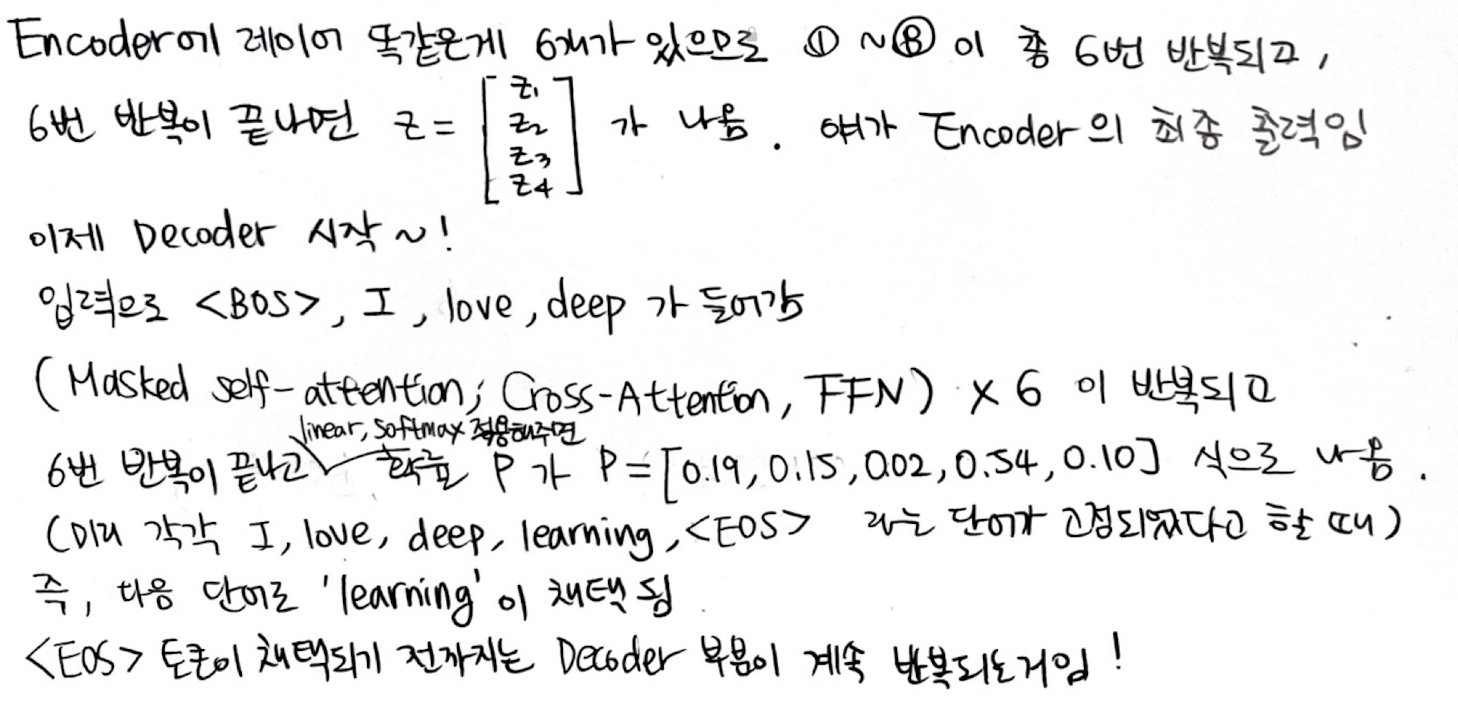 Encoder에 레이어 똑같은게 6개가 있으므로 ① ~ ⑧ 이 총 6번 반복되고,
6번 반복이 끝나면 z = [z1 z2 z3 z4] 가 나옴. 얘가 Encoder의 최종 출력임!
이제 Decoder 시작~!
입력으로 <BOS>, I, love, deep 가 들어감
(Masked self-attention; Cross-Attention, FFN) × 6 이 반복되고
linear, softmax 적용해주면
6번 반복이 끝나고 확률 P 가 P = [0.19, 0.15, 0.02, 0.54, 0.10] 식으로 나옴.
(미리 각각 I, love, deep, learning, <EOS> 라는 단어가 고정되었다고 할 때)
즉, 다음 단어로 'learning'이 채택됨
<EOS> 토큰이 채택되기 전까지는 Decoder 부분이 계속 반복되는거임!